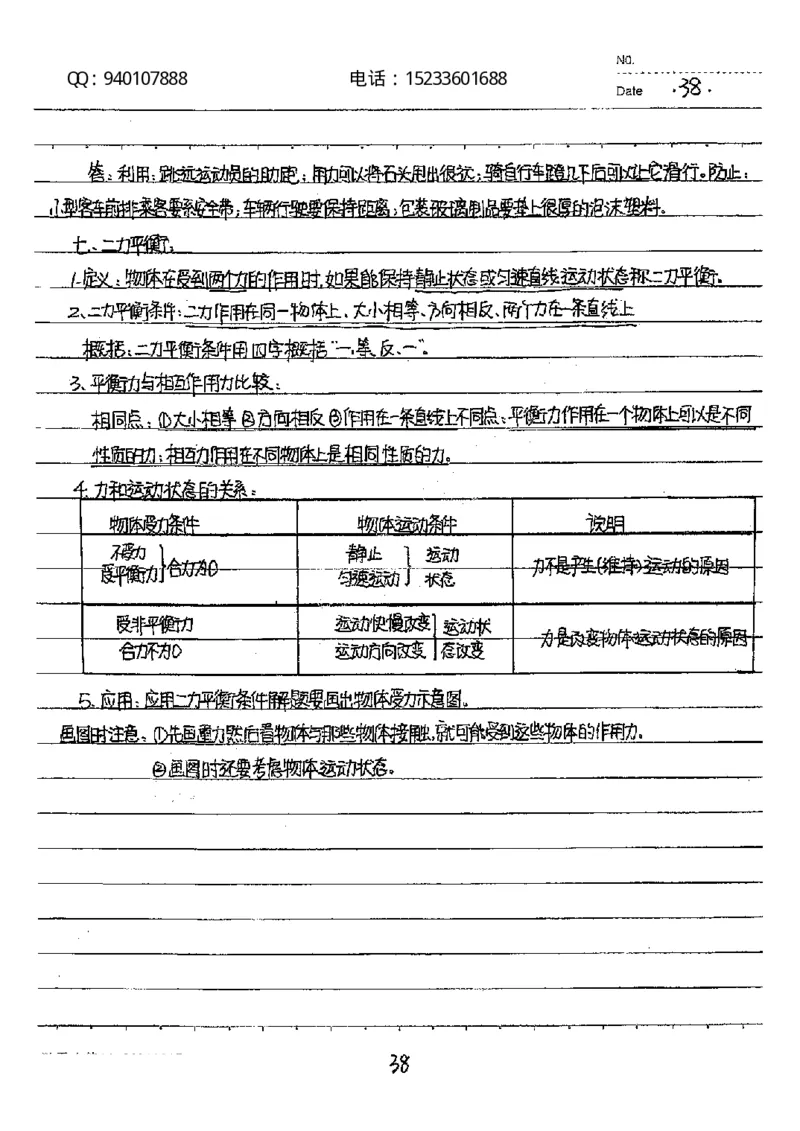 QQ：940107888 电话：15233601688 NO.
Date ·38·
答：利用：跳远运动员的助跑；用力可以将石头甩出很远；骑自行车蹬几下后可以让它滑行。防止：
小型客车前排乘客要系安全带；车辆行驶要保持距离；包装玻璃制品要垫上很厚的泡沫塑料。
七、二力平衡：
1.定义：物体在受到两个力的作用时，如果能保持静止状态或匀速直线运动状态称二力平衡。
2、二力平衡条件：二力作用在同一物体上、大小相等、方向相反、两个力在一条直线上
概括：二力平衡条件用四字概括“一、等、反、一”。
3、平衡力与相互作用力比较：
相同点：①大小相等②方向相反③作用在一条直线上不同点：平衡力作用在一个物体上可以是不同
性质的力；相互力作用在不同物体上是相同性质的力。
4.力和运动状态的关系：
物体受力条件 物体运动条件 说明
不受力
受平衡力 合力为0
静止
匀速运动
运动
状态
力不是产生(维持)运动的原因
受非平衡力
合力不为0
运动快慢改变
运动方向改变
运动状
态改变
力是改变物体运动状态的原因
5、应用：应用二力平衡条件解题要画出物体受力示意图。
画图时注意：①先画重力然后看物体与那些物体接触，就可能受到这些物体的作用力。
②画图时还要考虑物体运动状态。
38